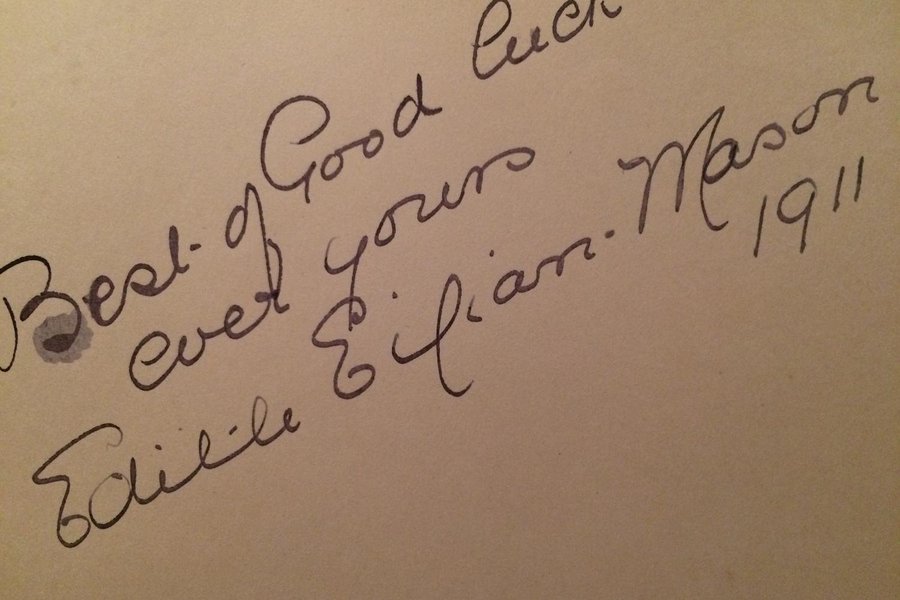 Best of Good luck
ever yours
Edith Mason
1911